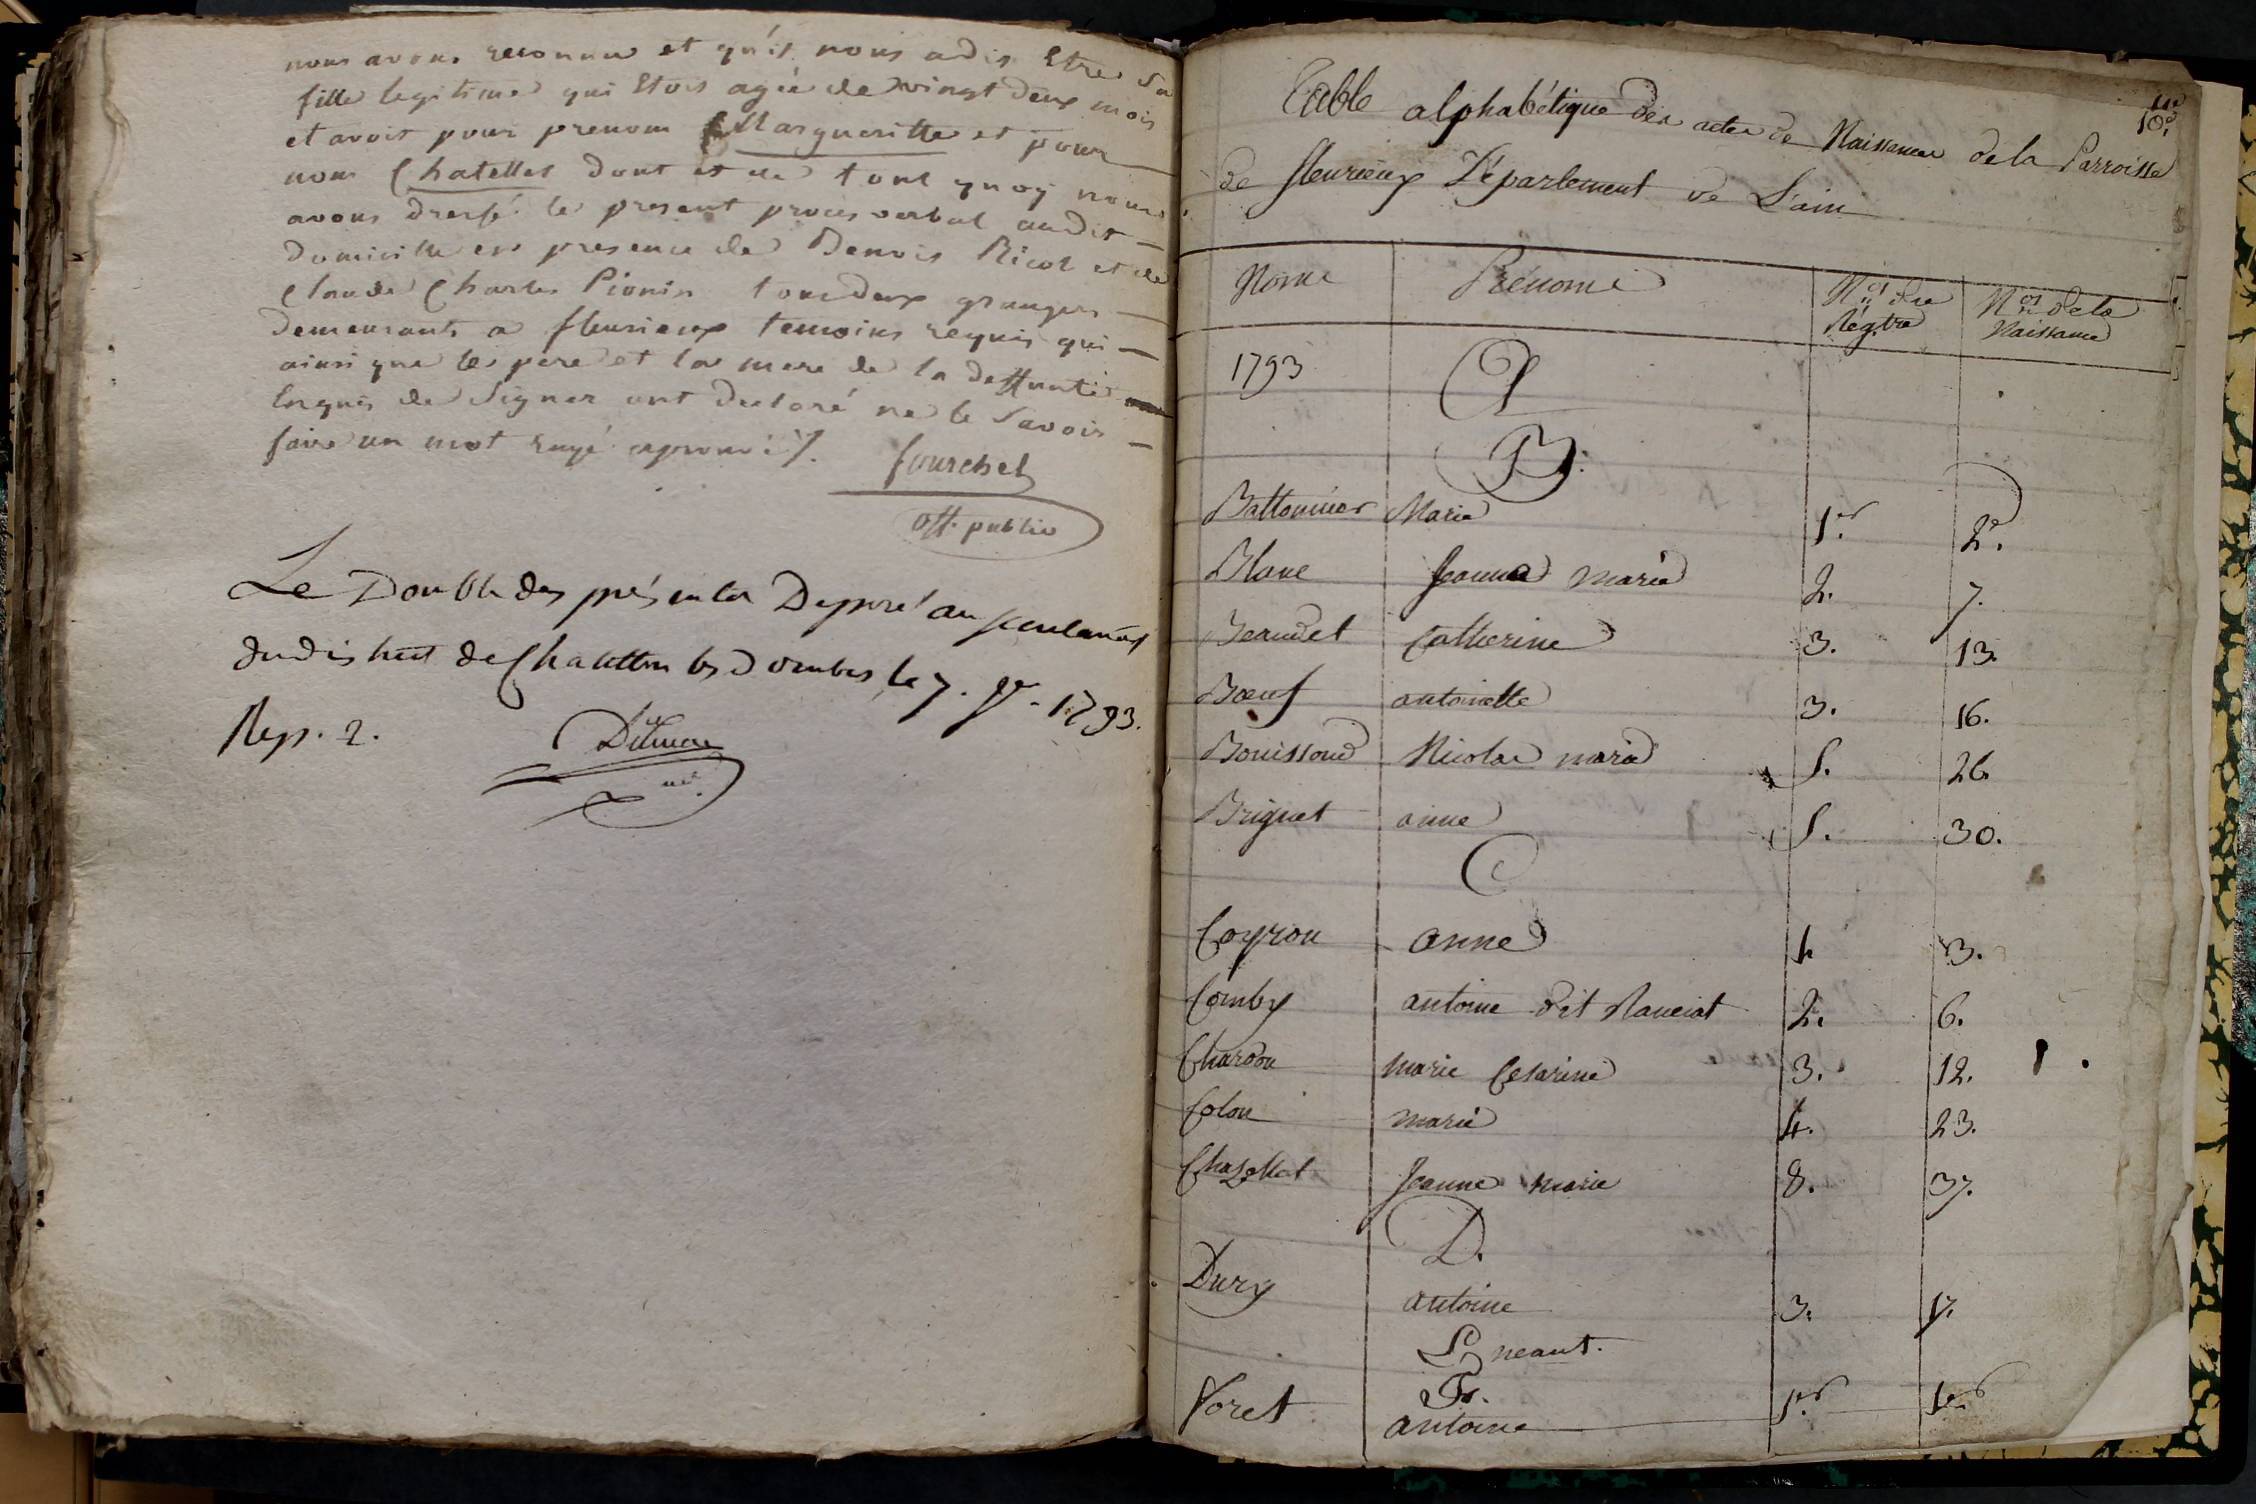 nous avons reconnu et qu'il nous a dis Etre Sa
fille legitime qui Etois agée de vingt deux mois
et avoit pour prenom Margueritte et pour
nom Chatellet dont et de tout quoy nous
avons dressé le present proces verbal audit
domicille en presence de Benois Ricol et de
Claude Charles Pionin tous deux grangers
demeurants a fleurieux temoins requis qui
ainsi que le pere et la mere de la deffunte
Enquis de Signer ont declaré ne le Savoir
faire un mot rayé aprouvé ./.
fourchet
off. public
Le Double des présentes Depposé au secretariat
du district de Chatillon les Dombes le 7. 1793.
Rep. 2.
Table alphabétique des actes de Naissance de la Parroisse
de fleurieux Département de L'ain
Noms Prénoms Nos du Régtre Nos de la Naissance
1793 A
B.
Battonnier Marie 1er 2e.
Blanc Jeanne Marie 2. 7.
Beaudet Catherine 3. 13.
Boeuf antoinette 3. 16.
Bouissoud Nicolas marie 5. 26.
Briguet anne 5. 30.
C
Coyron anne 1. 3.
Comby antoine dit Nanciat 2. 6.
Chardon Marie Cesarine 3. 12.
Colon Marie 4. 23.
Chazellat Jeanne Marie 8. 37.
D.
Dury antoine 3. 17.
E neant.
F.
Foret antoine 1er 1er